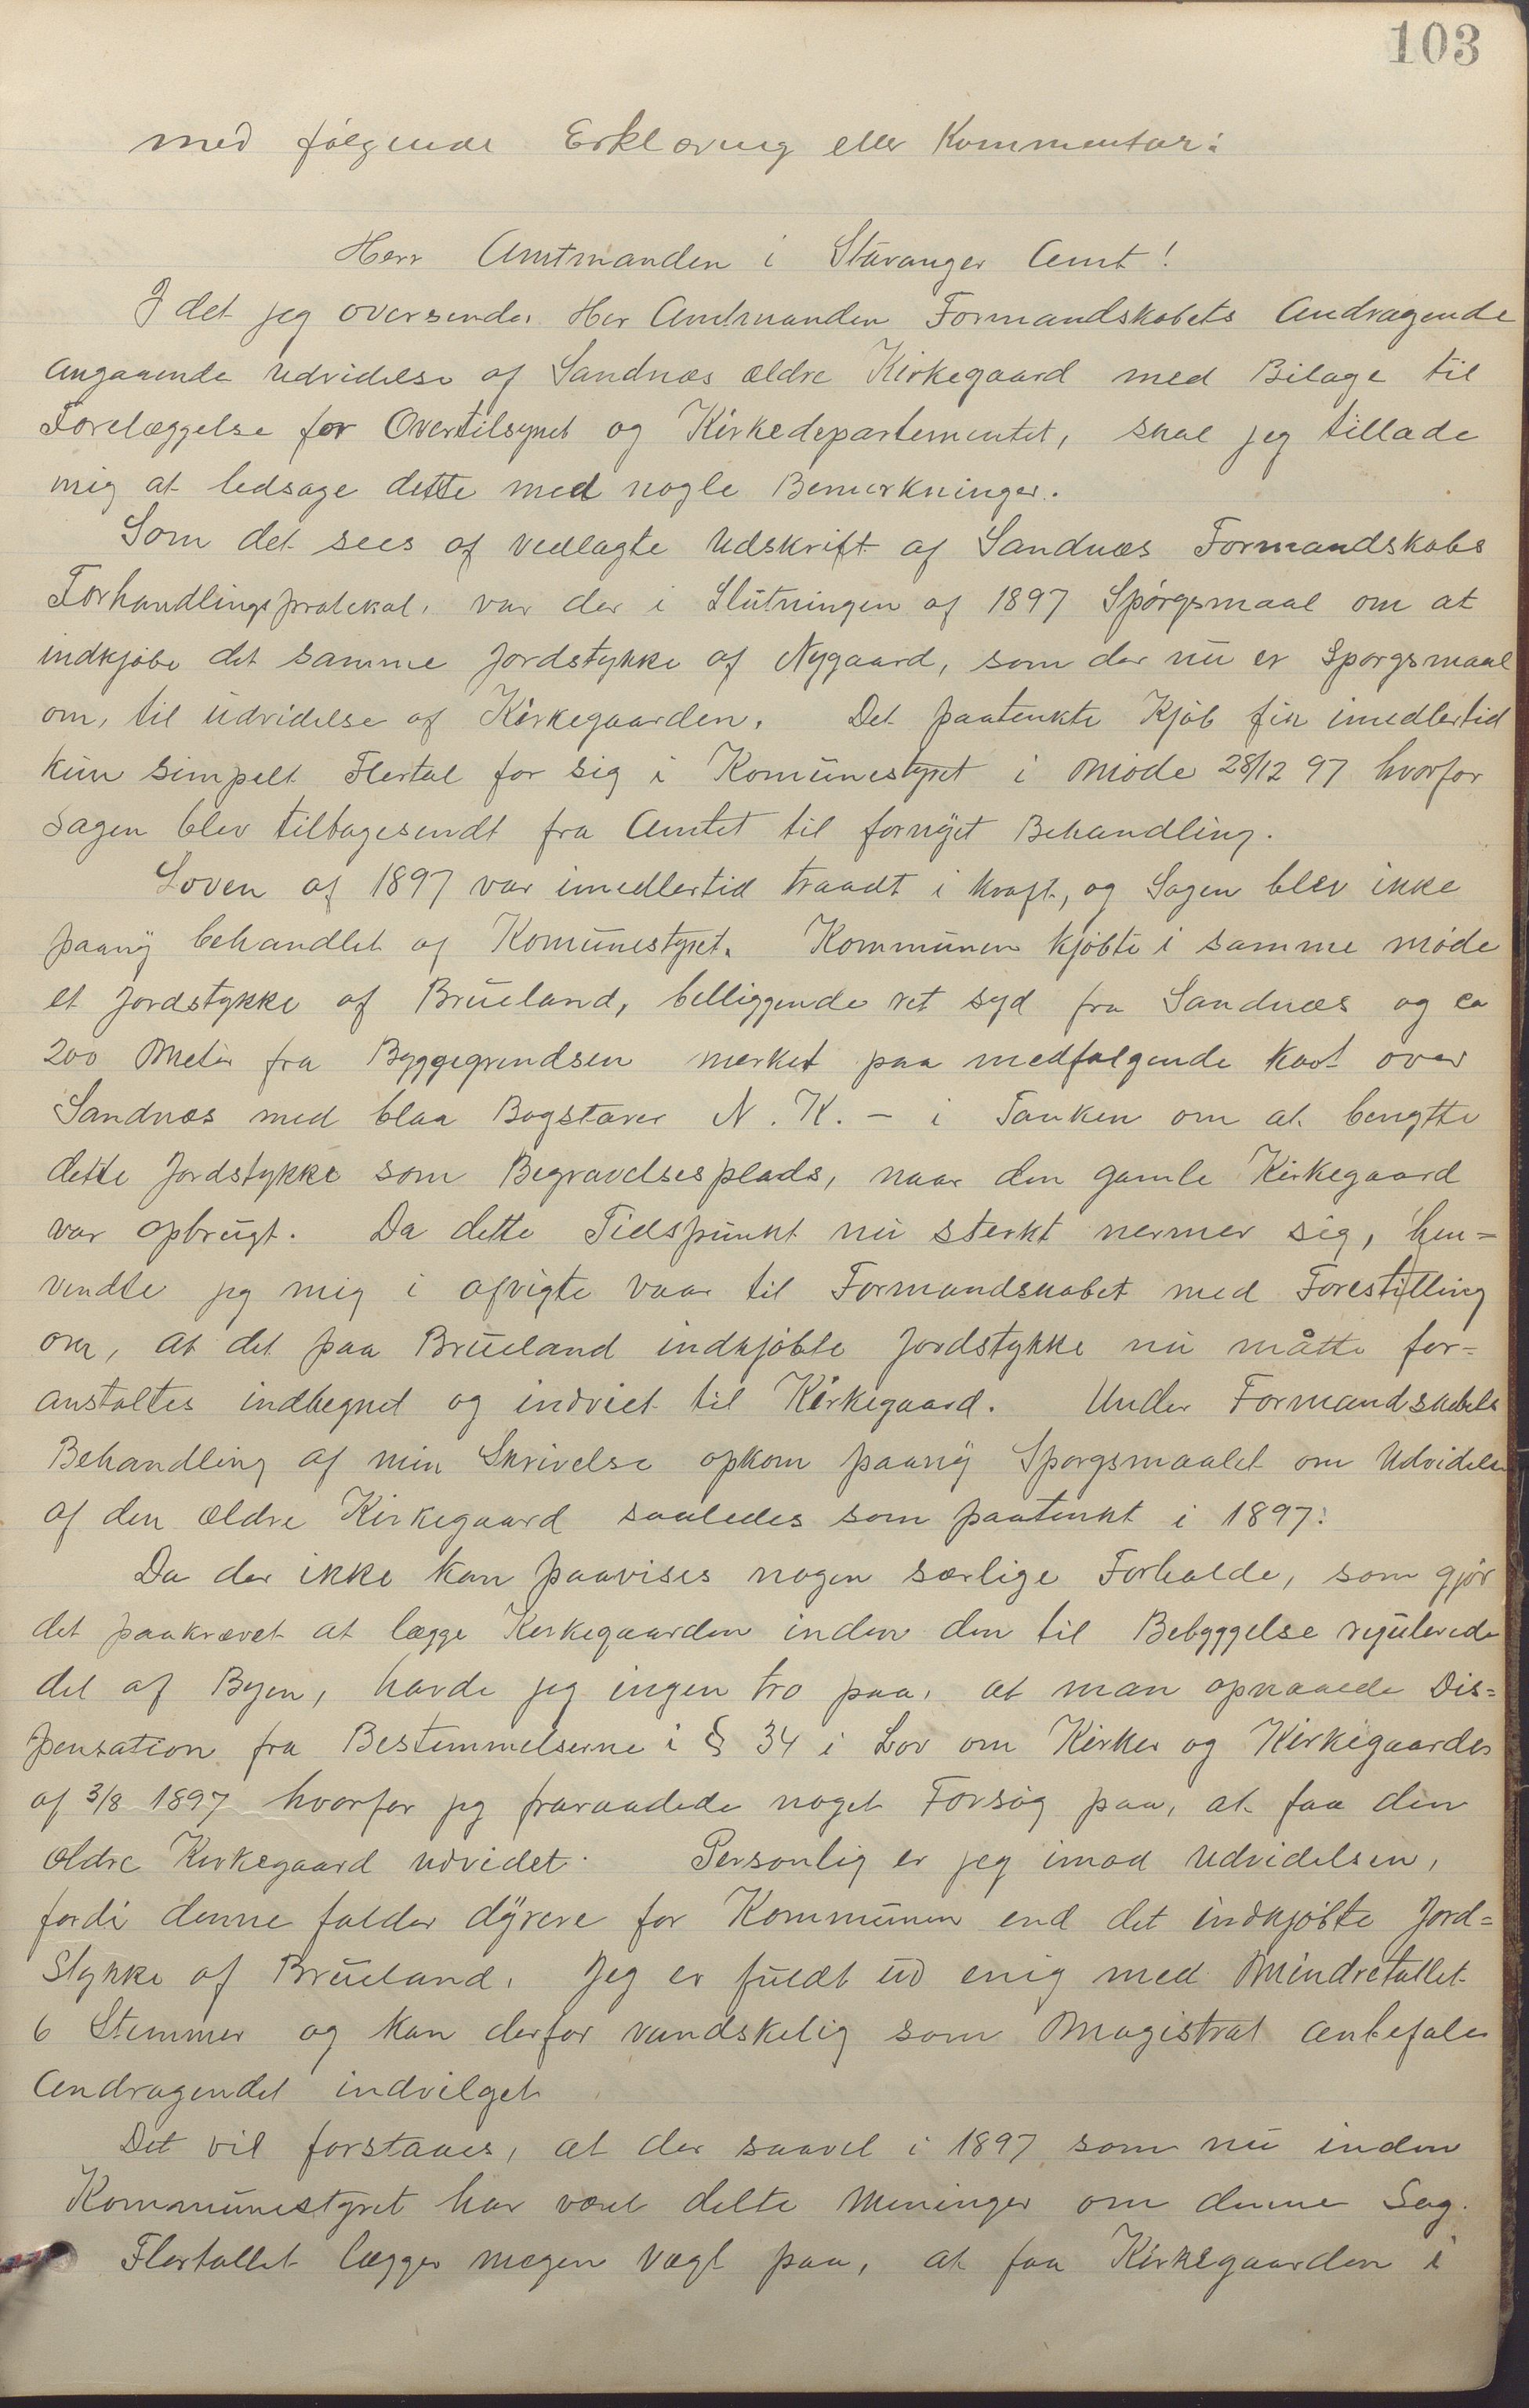 103
med følgende Erklæring eller Kommentar:
Herr Amtmanden i Stavanger Amt!
I det jeg oversender Hr Amtmanden Formandskabets Andragende
angaaende Udvidelse af Sandnæs ældre Kirkegaard med Bilage til
Forelæggelse for Overtilsynet og Kirkedepartementet, skal jeg tillade
mig at ledsage dette med nogle Bemerkninger.
Som det sees af vedlagte Udskrift af Sandnæs Formandskabs
Forhandlingsprotokol, var der i Slutningen af 1897 Spørgsmaal om at
indkjøbe det samme Jordstykke af Nygaard, som der nu er Spørgsmaal
om, til udvidelse af Kirkegaarden. Det paatenkte Kjøb fik imedlertid
kun simpelt Flertal for sig i Komunestyret i Møde 28/12 97 hvorfor
Sagen blev tilbagesendt fra Amtet til fornyet Behandling.
Loven af 1897 var imedlertid traadt i kraft, og Sagen blev ikke
paany behandlet af Komunestyret. Kommunen kjøbte i samme møde
et Jordstykke af Brueland, belliggende ret syd fra Sandnæs og ca
200 Meter fra Byggegrendsen merket paa medfølgende kart over
Sandnæs med blaa Bogstaver N. K. - i Tanken om at benytte
dette Jordstykke som Begravelsesplads, naar den gamle Kirkegaard
var opbrugt. Da dette Tidspunkt nu sterkt nermer sig, hen=
vendte jeg mig i afvigte vaar til Formandskabet med Forestilling
om, at det paa Brueland indkjøbte Jordstykke nu måtte for=
anstaltes indhegnet og indviet til Kirkegaard. Under Formandskabets
Behandling af min Skrivelse opkom paany Spørgsmaalet om Udvidelse
af den ældre Kirkegaard saaledes som paatenkt i 1897.
Da der ikke kan paavises nogen særlige Forholde, som gjør
det paakrævet at lægge Kirkegaarden inden den til Bebyggelse regulerede
del af Byen, havde jeg ingen tro paa, at man opnaaede Dis=
pensation fra Bestemmelserne i § 34 i Lov om Kirker og Kirkegaarder
af 3/8 1897 hvorfor jeg fraraadede noget Forsøg paa, at faa den
ældre Kirkegaard udvidet. Personlig er jeg imod Udvidelsen,
fordi denne falder dyrere for Kommunen end det indkjøbte Jord=
Stykke af Brueland. Jeg er fuldt ud enig med Mindretallet
6 Stemmer og kan derfor vandskelig som Magistrat anbefale
Andragendet indvilget
Det vil forstaaes, at der saavel i 1897 som nu inden
Kommunestyret har været delte Meninger om denne Sag.
Flertallet lægger megen Vægt paa, at faa Kirkegaarden i